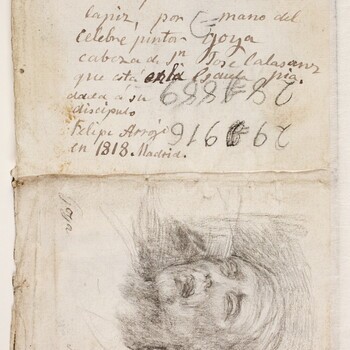 lapiz, por mano del
celebre pintor Goya
cabeza d. Sn José Calasanz
que está en la Escuela pia.
dada á su
discipulo
Felipe Arrojo
en 1818. Madrid.
Goya